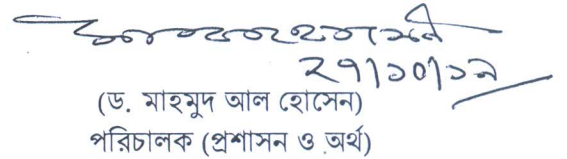 ২৭|১০|১৯
(ড. মাহমুদ আল হোসেন)
পরিচালক (প্রশাসন ও অর্থ)